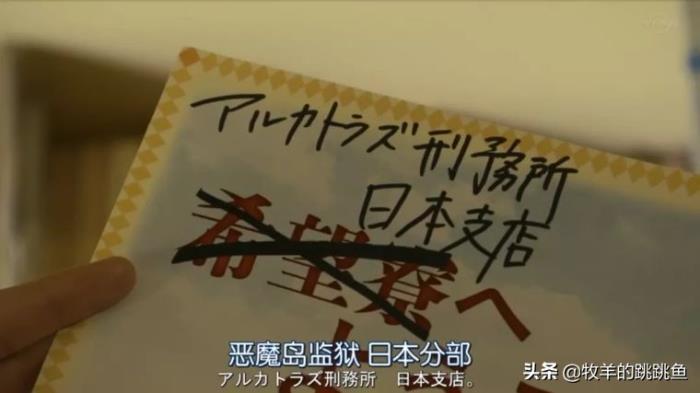 アルカトラズ刑務所
日本支店
希望寮へ
恶魔岛监狱 日本分部
アルカトラズ刑務所　日本支店。
头条 @牧羊的跳跳鱼